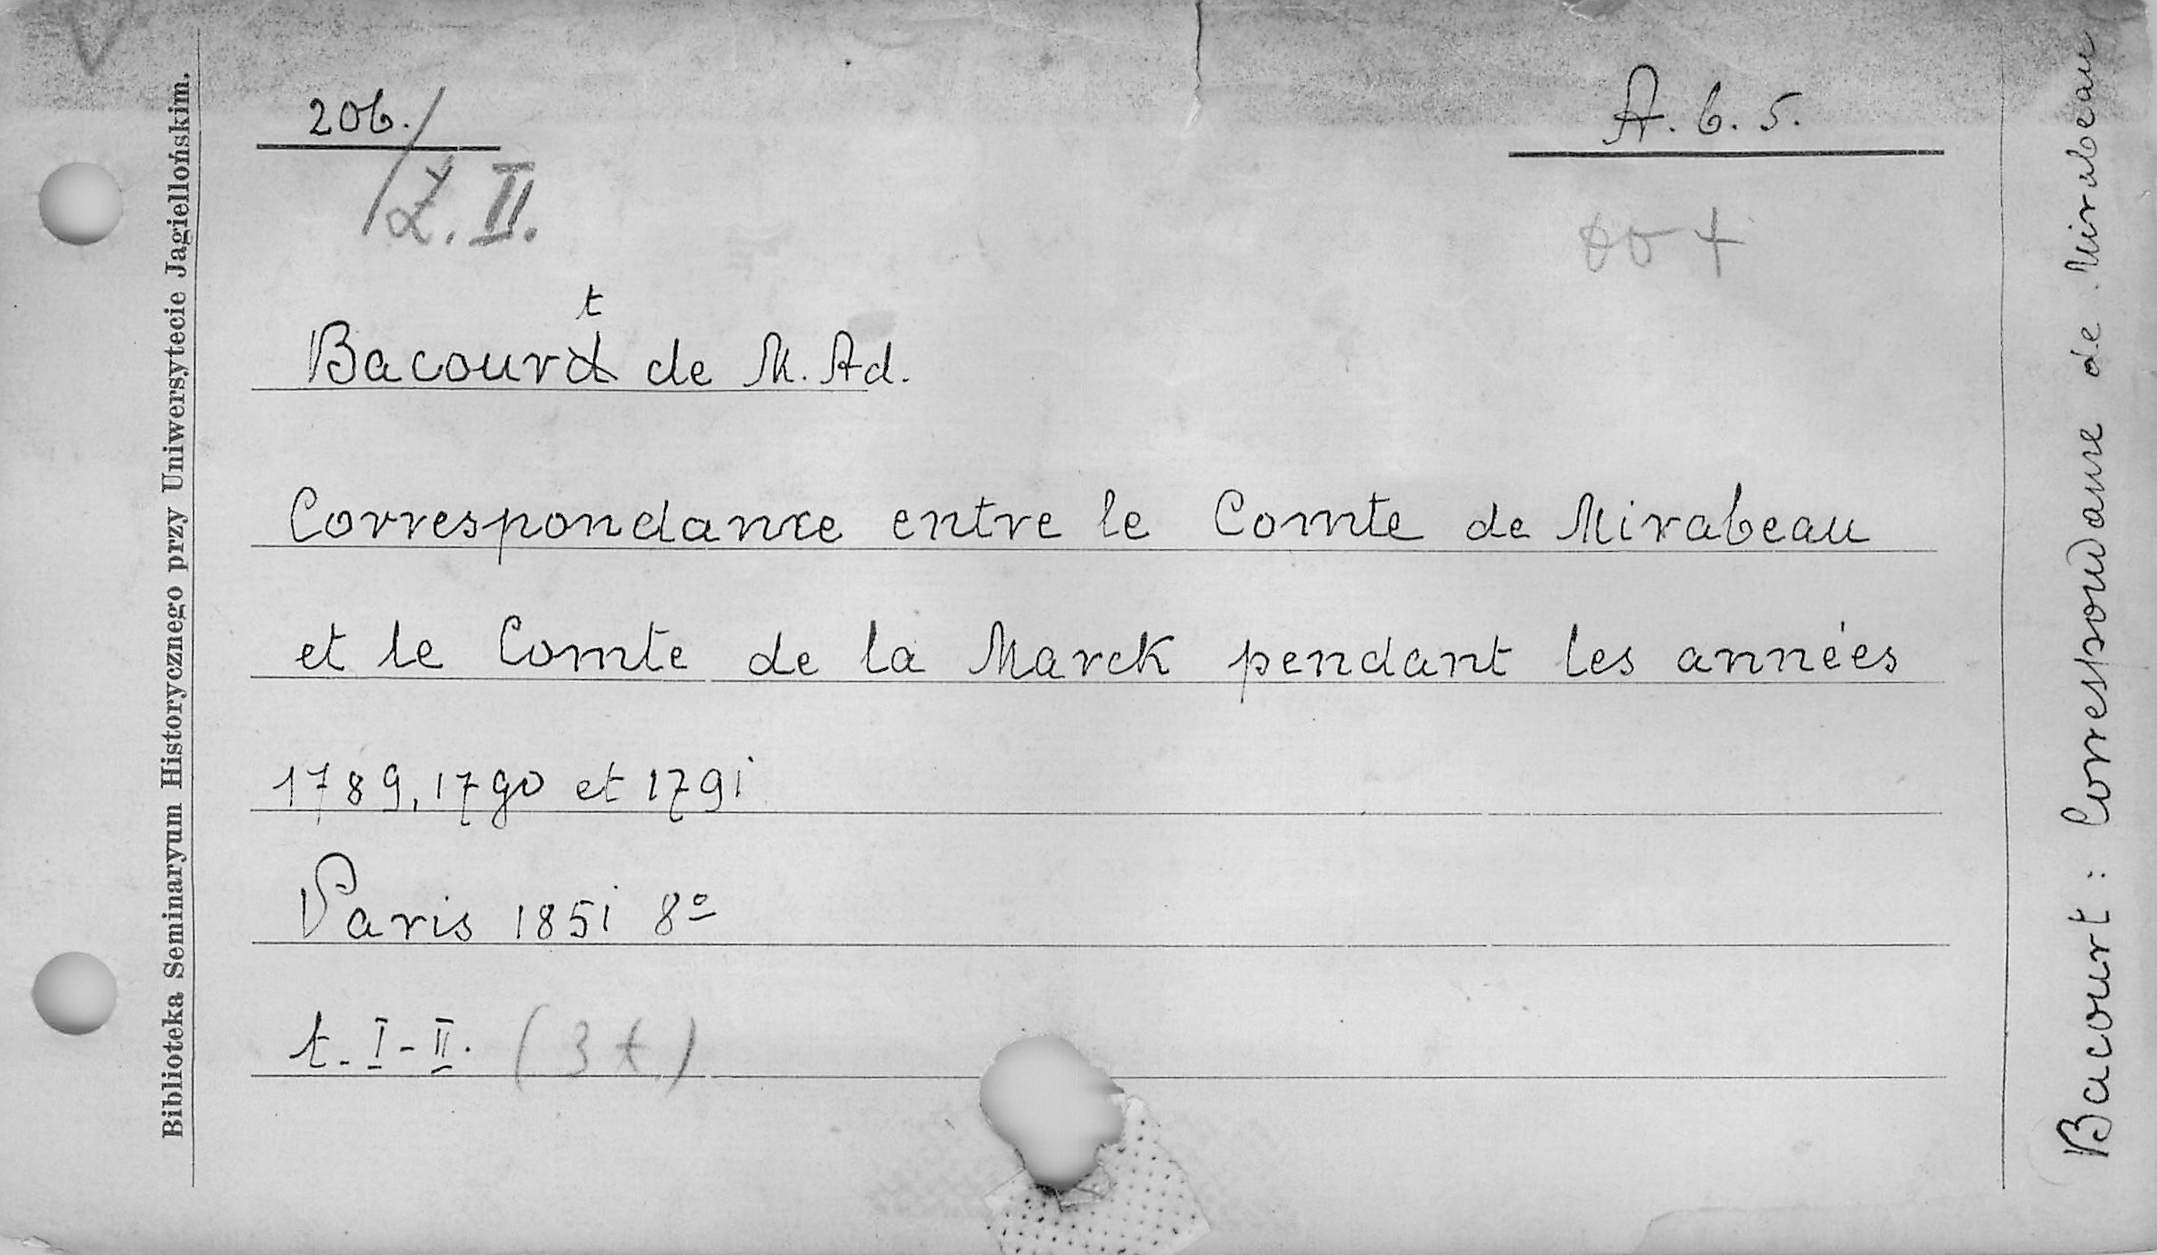 206./
Z. II.
A. 6. 5.
t
Bacourd de M. Ad.
Correspondance entre le Comte de Mirabeau
et le Comte de la Marck pendant les années
1789, 1790 et 1791
Paris 1851 8º
t. I-II. (3 t)
Biblioteka Seminaryum Historycznego przy Uniwersytecie Jagiellońskim.
Bacourt: Correspondance de Mirabeau